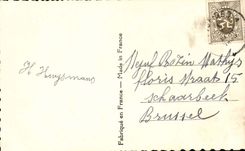 H Huysmans
Fabriqué en France — Made in France
Mathijs
floris straat 15
Schaarbeek
Brussel